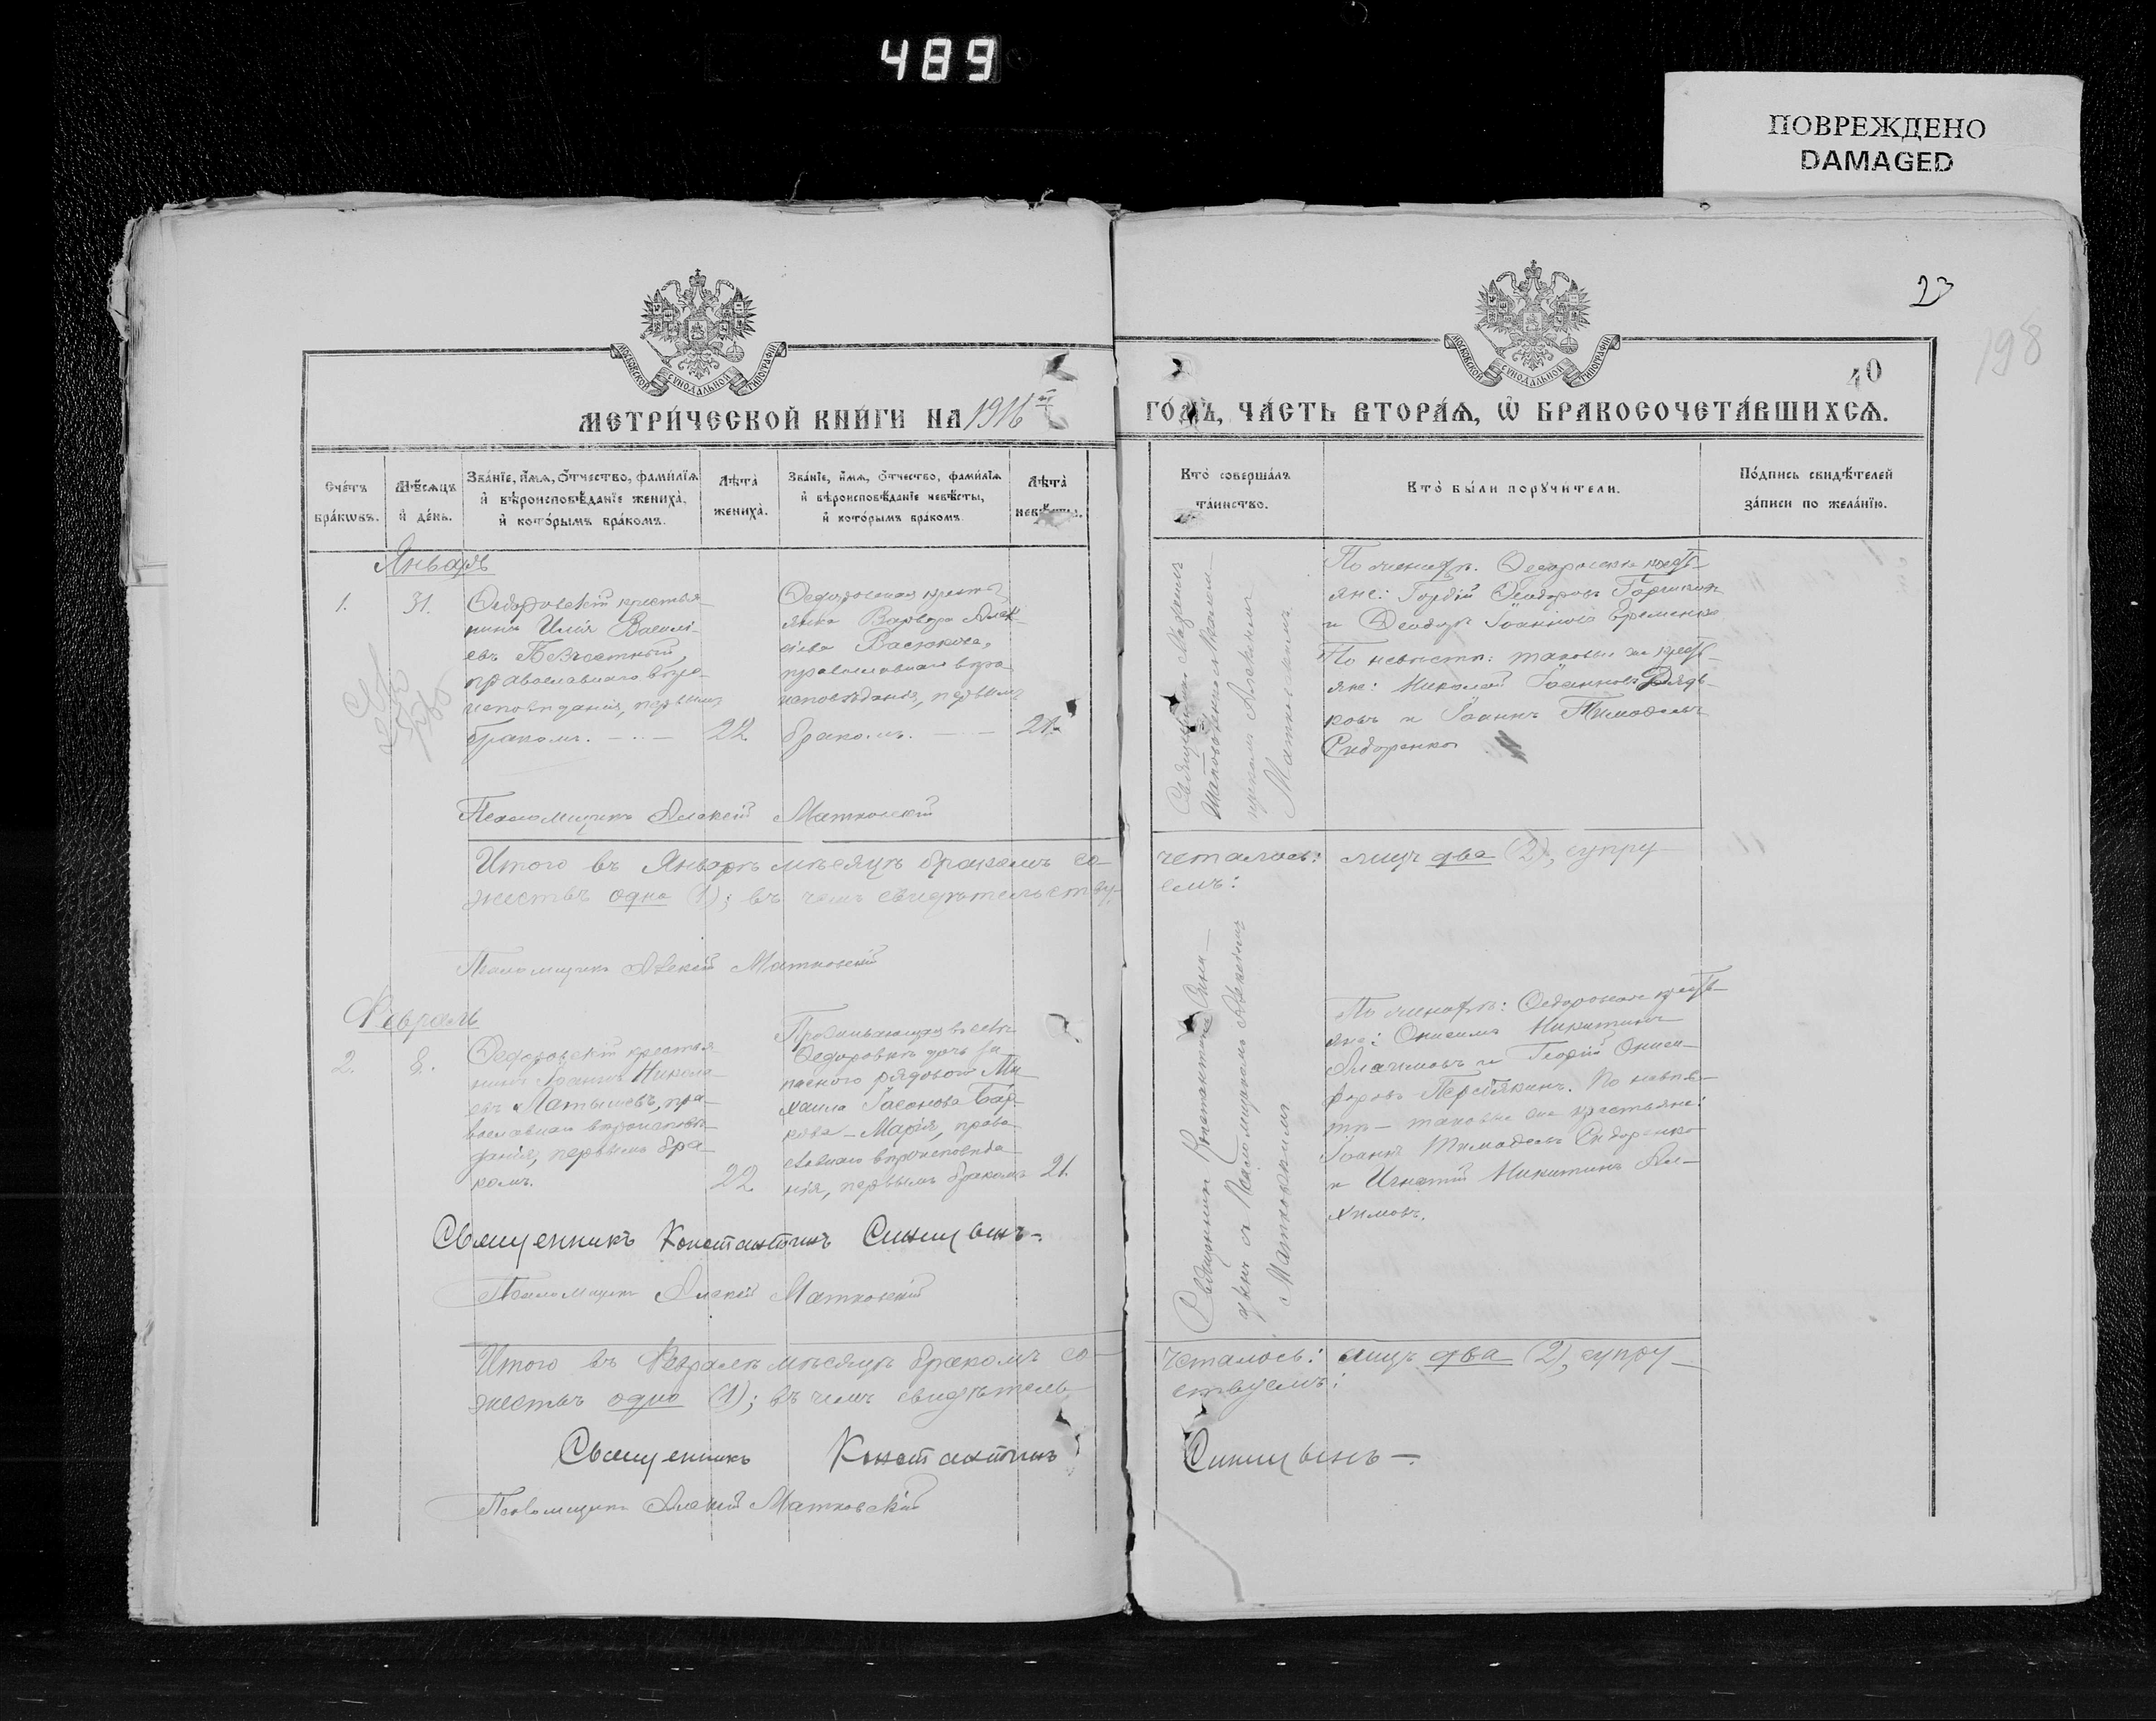 489
ПОВРЕЖДЕНО
DAMAGED
23
198
40
МОСКОВСКОЙ СѴНОДАЛЬНОЙ ТИПОГРАФІИ
МОСКОВСКОЙ СѴНОДАЛЬНОЙ ТИПОГРАФІИ
МЕТРИ́ЧЕСКОЙ КНИ́ГИ НА 1916 й
ГО́ДЪ, ЧА́СТЬ ВТОРА́Я, Ѡ БРАКОСОЧЕТА́ВШИХСЯ.
Сче́тъ
бра́кѡвъ.
Мѣ́сяцъ
и де́нь.
Зва́нїе, и́мя, о́тчество, фами́лїя
и вѣроисповѣ́данїе жениха̀,
и кото́рымъ бра́комъ.
Лѣта̀
жениха̀.
Зва́нїе, и́мя, о́тчество, фами́лїя
и вѣроисповѣ́данїе невѣ́сты,
и кото́рымъ бра́комъ.
Лѣта̀
невѣ́сты.
Кто̀ соверша́лъ
та́инство.
Кто̀ бы́ли поручи́тели.
По́дпись свидѣ́телей
за́писи по жела́нїю.
Январь
1.
31.
Ѳедоровскій крестья-
нинъ Илія Василі-
евъ
православнаго вѣро-
исповѣданія, первымъ
бракомъ.
22
Ѳедоровская кресть-
янка Варвара Алек-
сіева
православнаго вѣро-
исповѣданія, первымъ
бракомъ.
21.
Псаломщикомъ Алексіемъ
Матковскимъ
По женихѣ: Ѳедоровскіе кресть-
яне: Гордій Ѳеодоровъ
и Ѳеодоръ Іоанновъ Еременко
По невѣстѣ: таковые же кресть-
яне: Николай Іоанновъ Дядь-
ковъ и Іоаннъ Тимоѳеевъ
Сидоренко
Псаломщикъ Алексій Матковскій
Итого въ Январѣ мѣсяцѣ бракомъ со-
четалось: лицъ два (2), супру-
жествъ одно (1); въ чемъ свидѣтельству-
емъ:
Псаломщикъ Алексій Матковскій
Февраль
2.
8.
Ѳедоровскій крестья-
нинъ Іоаннъ Никола-
евъ Латышевъ, пра-
вославнаго вѣроисповѣ-
данія, первымъ бра-
комъ.
22
Проживающая въ селѣ
Ѳедоровкѣ дочь за-
паснаго рядового Ми-
хаила Іасонова Бар-
кова - Марія, право-
славнаго вѣроисповѣда-
нія, первымъ бракомъ
21.
Священникъ Константинъ Сини-
цынъ съ Псаломщикомъ Алексіемъ
Матковскимъ
По женихѣ: Ѳедоровскіе кресть-
яне: Онисимъ Никитинъ
Алхимовъ и Георгій Ониси-
форовъ Перетякинъ. По невѣс-
тѣ - таковые же крестьяне:
Іоаннъ Тимоѳеевъ Сидоренко
и Игнатій Никитинъ Ал-
химовъ.
Священникъ Константинъ Синицынъ -.
Псаломщикъ Алексій Матковскій
Итого въ Февралѣ мѣсяцѣ бракомъ со-
четалось: лицъ два (2), супру-
жествъ одно (1); въ чемъ свидѣтель-
ствуемъ:
Священникъ Константинъ Синицынъ -.
Псаломщикъ Алексій Матковскій